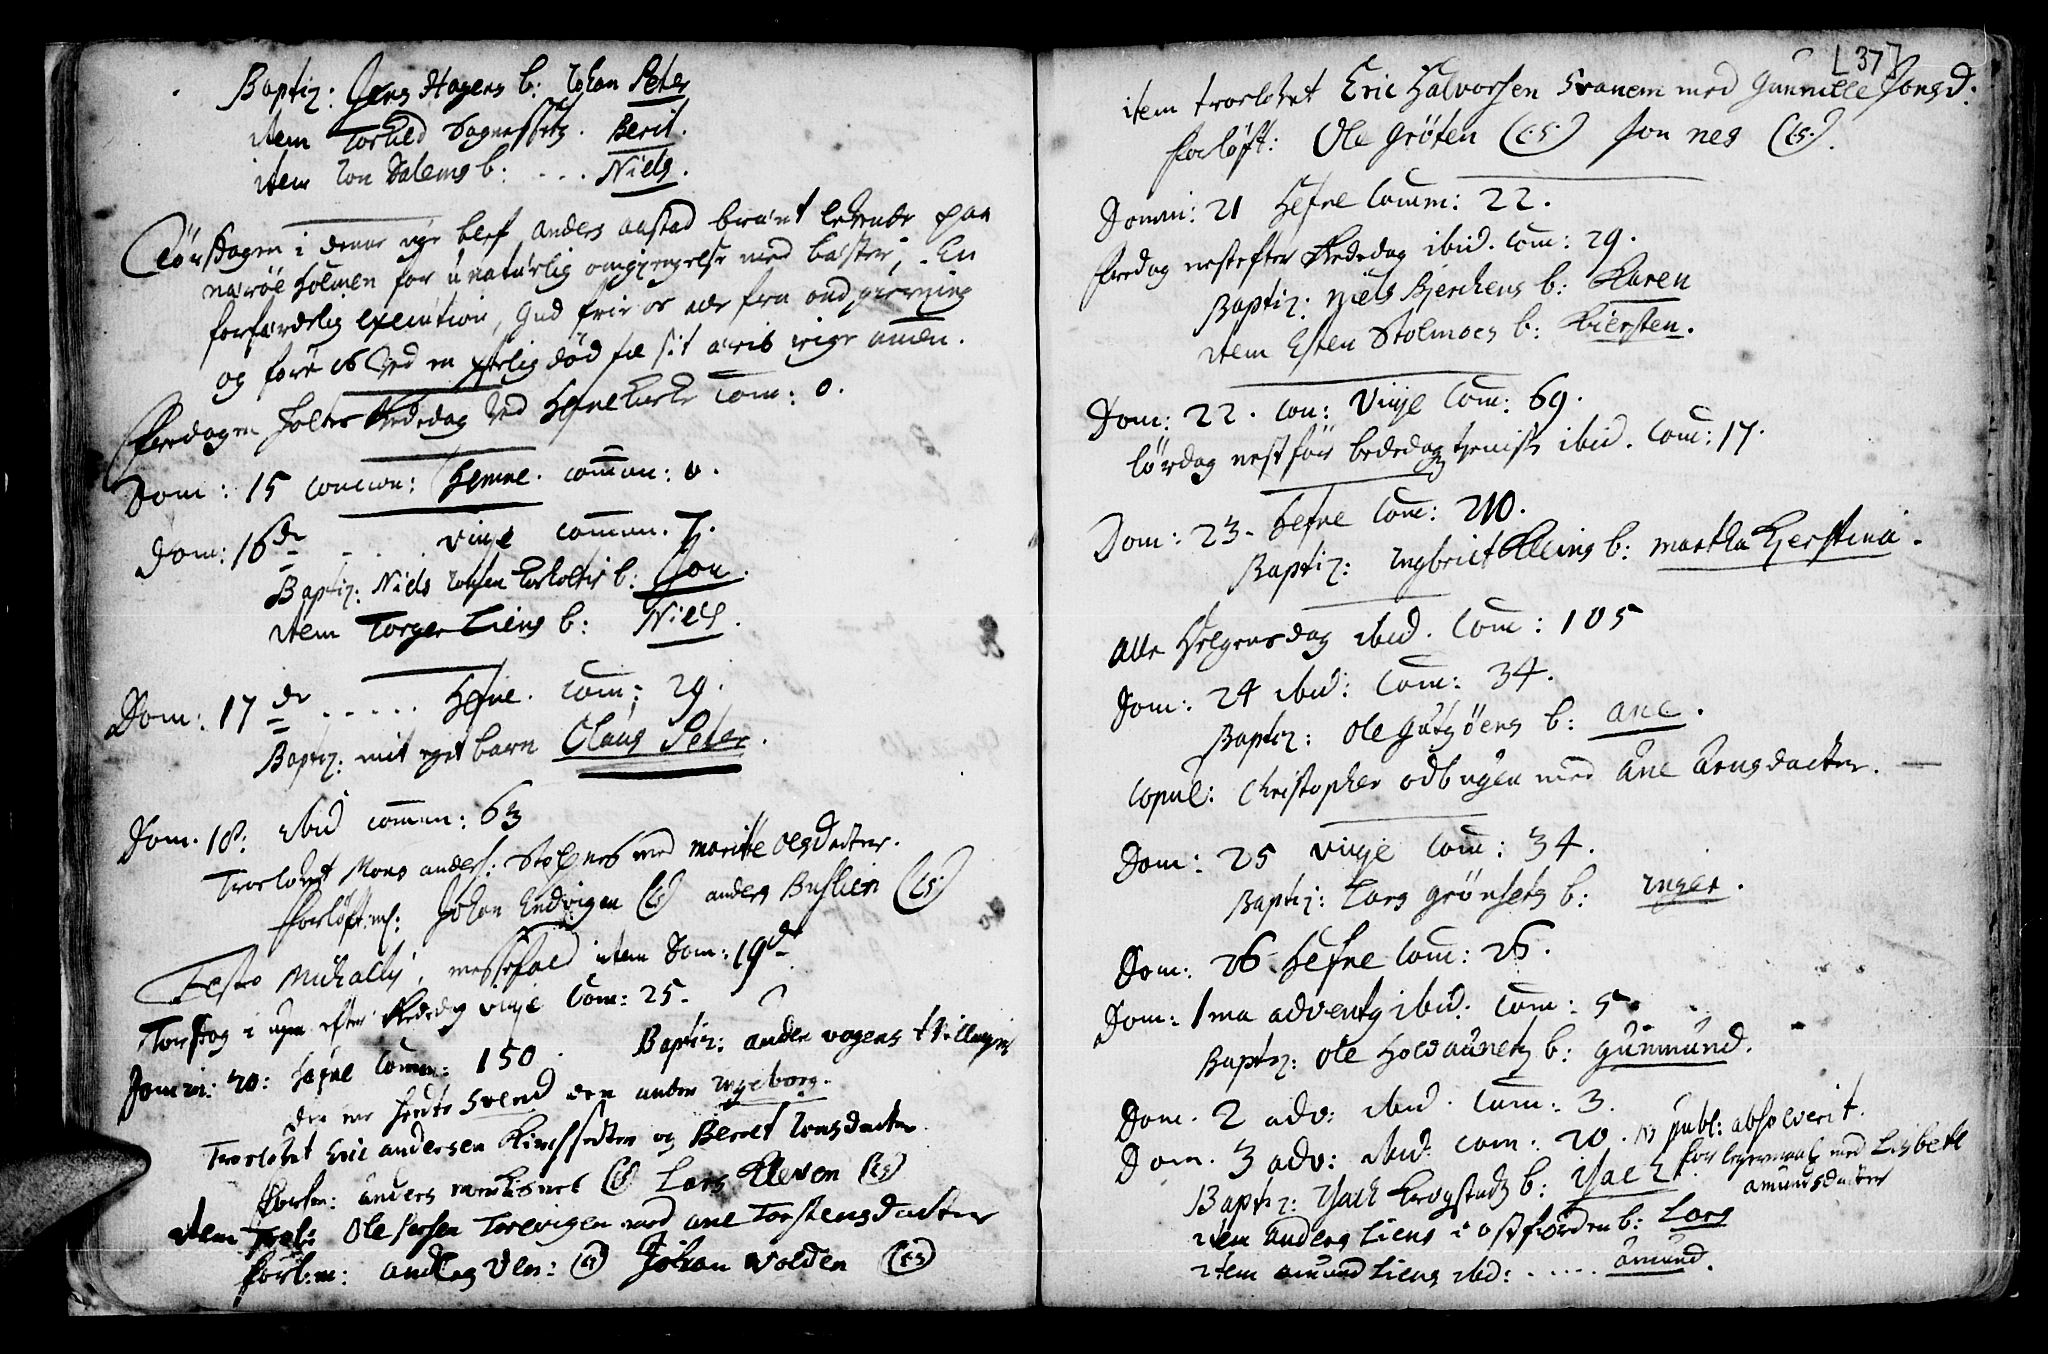 Baptiz: Jens Hagens b: Johan Peter
item Torkild Sognes b. Berit.
item Jon Salems b: . . . Niels.
Tørsdagen i denne uge blef Anders Aastad brænt lefvende paa
nærøe holmen for unaturlig omgiengelse med bæster; En
forfærdelig execution, Gud frie os alle fra ond gierning
og føre os ved en død til sit æris rige amen.
Fredagen holtes Bededag ved Hefne kirke Com: 0.
Dom: 15 concion: Hemne. commun: 0.
Dom: 16 de . . . Vinje commun. 7.
Baptiz: Niels b: Jon.
item Torger Liens b: Niels.
Dom: 17 de . . . . . Hefne. Com: 29.
Baptiz: mit eget barn Claus Peter.
Dom. 18: ibid commun: 63
Trolovet Mons anders: med marite olsdatter.
Forløft.m: Johan Endvigen (LS) anders Buslien (LS)
Festo Michaelis, messefald item Dom: 19de
Torsdag i ugen efter Bededag vinje Com: 25.
Domin: 20: Hefne Comm: 150. Baptiz: anders vagens tvillinger
den ene heete Svend den anden Ingeborg.
Trolovet Eric andersen og Beret Jonsdatter
Forløn: anders (LS) Lars Kleven (LS)
item Trol: Ole Torevigen med ane Torstensdatter
Forl:m: anders Ven: (LS) Johan Volden (LS)
[37]
item trolovet Eric Halvorsen Svanem med Gunnille Jonsd:
Forløft: Ole Grøten (LS) Jon nes (LS).
Domin: 21 Hefne Comm: 22.
Fredag nestefter Bededag ibid. Com: 29.
Baptiz: Niels Bjerckens b: Karen
item Esten Stolmoes b: Kiersten.
Dom: 22. con: Vinje Com: 69.
Lørdag nestfør bededags tieniste ibid. Com: 17.
Dom: 23. Hefne Com: 210.
Baptiz: Ingbrict Kleins b: martha Kjerstina.
Alle Helgensdag ibid. Com: 105
Dom: 24 ibid: Com: 34.
Baptiz: Ole Gutzøens b: ane.
Copul: Christopher odbugen med ane arnsdatter. —
Dom: 25 vinje Com: 34.
Baptiz: Lars Grønsets b: Inger.
Dom: 26 Hefne Com: 26.
Dom: 1ma adventz ibid: Com: 5
Baptiz: Ole Holdaunets b: Gunmund.
Dom. 2 adv: ibid. Com: 3.
Dom. 3 adv: ibid: Com: 20. NB publ: absolverit
for leyermaal med Lisbeth
amundsdatter
Baptiz: Isach Krogstads b: Isach
item anders Liens i ostfiorden b: Lars
item amund Liens ibid: . . . . . amund.